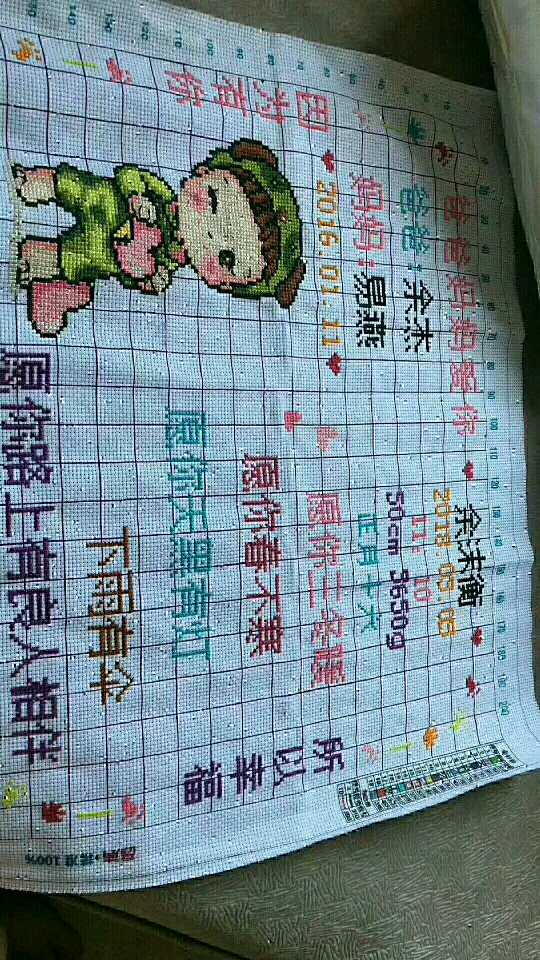 爸爸妈妈爱你
爸爸：余杰
妈妈：易燕
2016.01.11
因为有你
11:10
50cm 3650g
正月十六
愿你三冬暖
愿你春不寒
愿你天黑有灯
下雨有伞
愿你路上有良人相伴
所以幸福